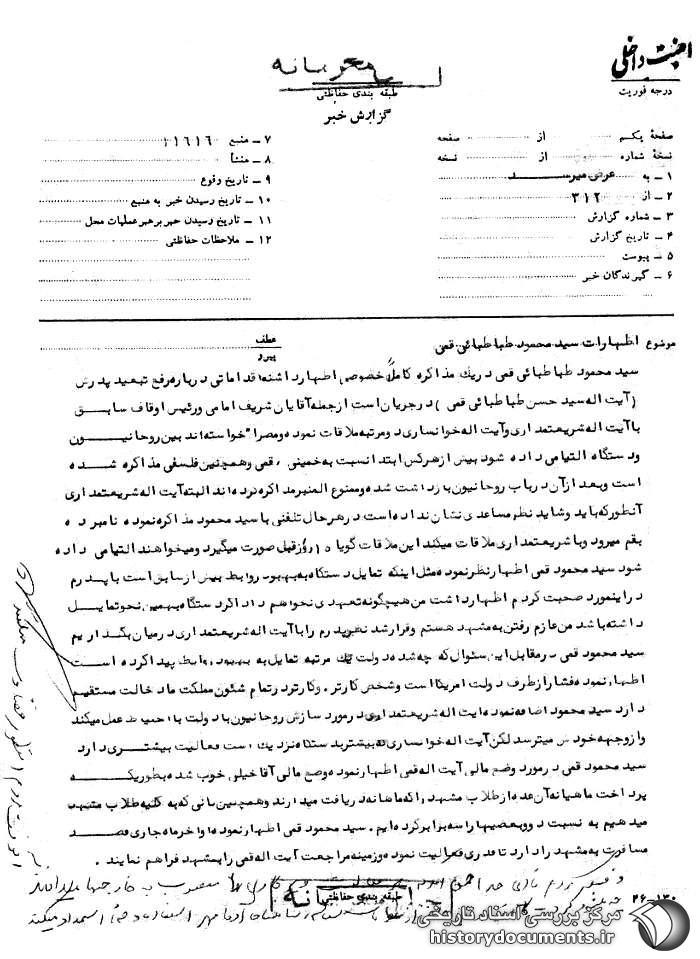 امنیت داخلی
درجه فوریت
محرمانه
طبقه بندی حفاظتی
گزارش خبر
صفحهٔ یکم از صفحه
نسخهٔ شماره از نسخه
۱ ــ به عرض میرسد
۲ ــ از ۳۱۲
۳ ــ شماره گزارش
۴ ــ تاریخ گزارش
۵ ــ پیوست
۶ ــ گیرندگان خبر
۷ ــ منبع ۱۱۶۱۶
۸ ــ منشأ
۹ ــ تاریخ وقوع
۱۰ ــ تاریخ رسیدن خبر به منبع
۱۱ ــ تاریخ رسیدن خبر برهبر عملیات محل
۱۲ ــ ملاحظات حفاظتی
موضوع اظهارات سید محمود طباطبائی قمی
عطف
پیرو
سید محمود طباطبائی قمی در یک مذاکره کاملاً خصوصی اظهار داشته اقداماتی درباره رفع تبعید پدرش
(آیت اله سید حسن طباطبائی قمی) در جریان است از جمله آقایان شریف امامی و رئیس اوقاف سابق
با آیت اله شریعتمداری و آیت اله خوانساری دو مرتبه ملاقات نموده و مصرا" خواسته اند بین روحانیون
و دستگاه التیامی داده شود بیش از هر کس ابتدا نسبت به خمینی ، قمی و همچنین فلسفی مذاکره شده
است و بعد از آن در باب روحانیون بازداشت شده و ممنوع المنبر مذاکره کرده اند البته آیت اله شریعتمداری
آنطور که باید و شاید نظر مساعدی نشان نداده است در هر حال تلفنی با سید محمود مذاکره نموده نامبرده
بقم میرود و با شریعتمداری ملاقات میکند این ملاقات گویا ۱۵ روز قبل صورت میگیرد و میخواهند التیامی داده
شود سید محمود قمی اظهار نظر نموده مثل اینکه تمایل دستگاه به بهبود روابط بیش از سابق است با پدرم
در اینمورد صحبت کردم اظهار داشت من هیچگونه تعهدی نخواهم داد اگر دستگاه بهمین نحو تمایل
داشته باشد من عازم رفتن به مشهد هستم و قرار شد نظر پدرم را با آیت اله شریعتمداری در میان بگذاریم
سید محمود قمی در مقابل این سئوال که چه شده دولت یک مرتبه تمایل به بهبود روابط پیدا کرده است
اظهار نموده فشار از طرف دولت امریکا است و شخص کارتر . و کارتر در تمام شئون مملکت ما دخالت مستقیم
دارد سید محمود اضافه نموده آیت اله شریعتمداری در مورد سازش روحانیون با دولت با احتیاط عمل میکند
و از وجهه خودش میترسد لکن آیت اله خوانساری که بیشتر بدستگاه نزدیک است فعالیت بیشتری دارد
سید محمود قمی در مورد وضع مالی آیت اله قمی اظهار نموده وضع مالی آقا خیلی خوب شده بطوریکه
پرداخت ماهیانه آن عده از طلاب مشهد را که ماهانه دریافت میدارند و همچنین نانی که به کلیه طلاب مشهد
میدهیم به نسبت دو و بعضیها را سه برابر کرده ایم . سید محمود قمی اظهار نموده اواخر ماه جاری قصد
مسافرت به مشهد را دارد تا قدری فعالیت نموده و زمینه مراجعت آیت اله قمی را بمشهد فراهم نمایند .
طبقه بندی حفاظتی
۱۳۰-۲۶
مرکز بررسی اسناد تاریخی
historydocuments.ir